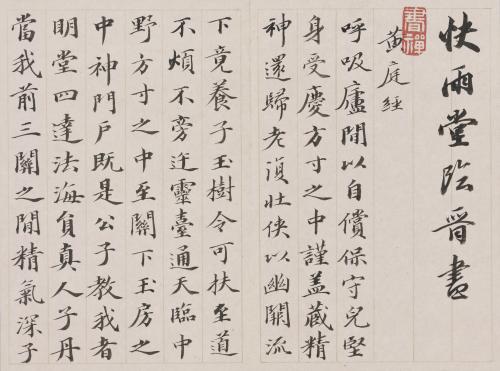 快雨堂臨晉書
書禪
黄庭經
呼吸廬間以自償保守兒堅
身受慶方寸之中謹盖藏精
神還歸老復壯俠以幽闕流
下竟養子玉樹令可扶至道
不煩不旁迕靈臺通天臨中
野方寸之中至關下玉房之
中神門戶既是公子教我者
明堂四達法海負真人子丹
當我前三關之間精氣深子